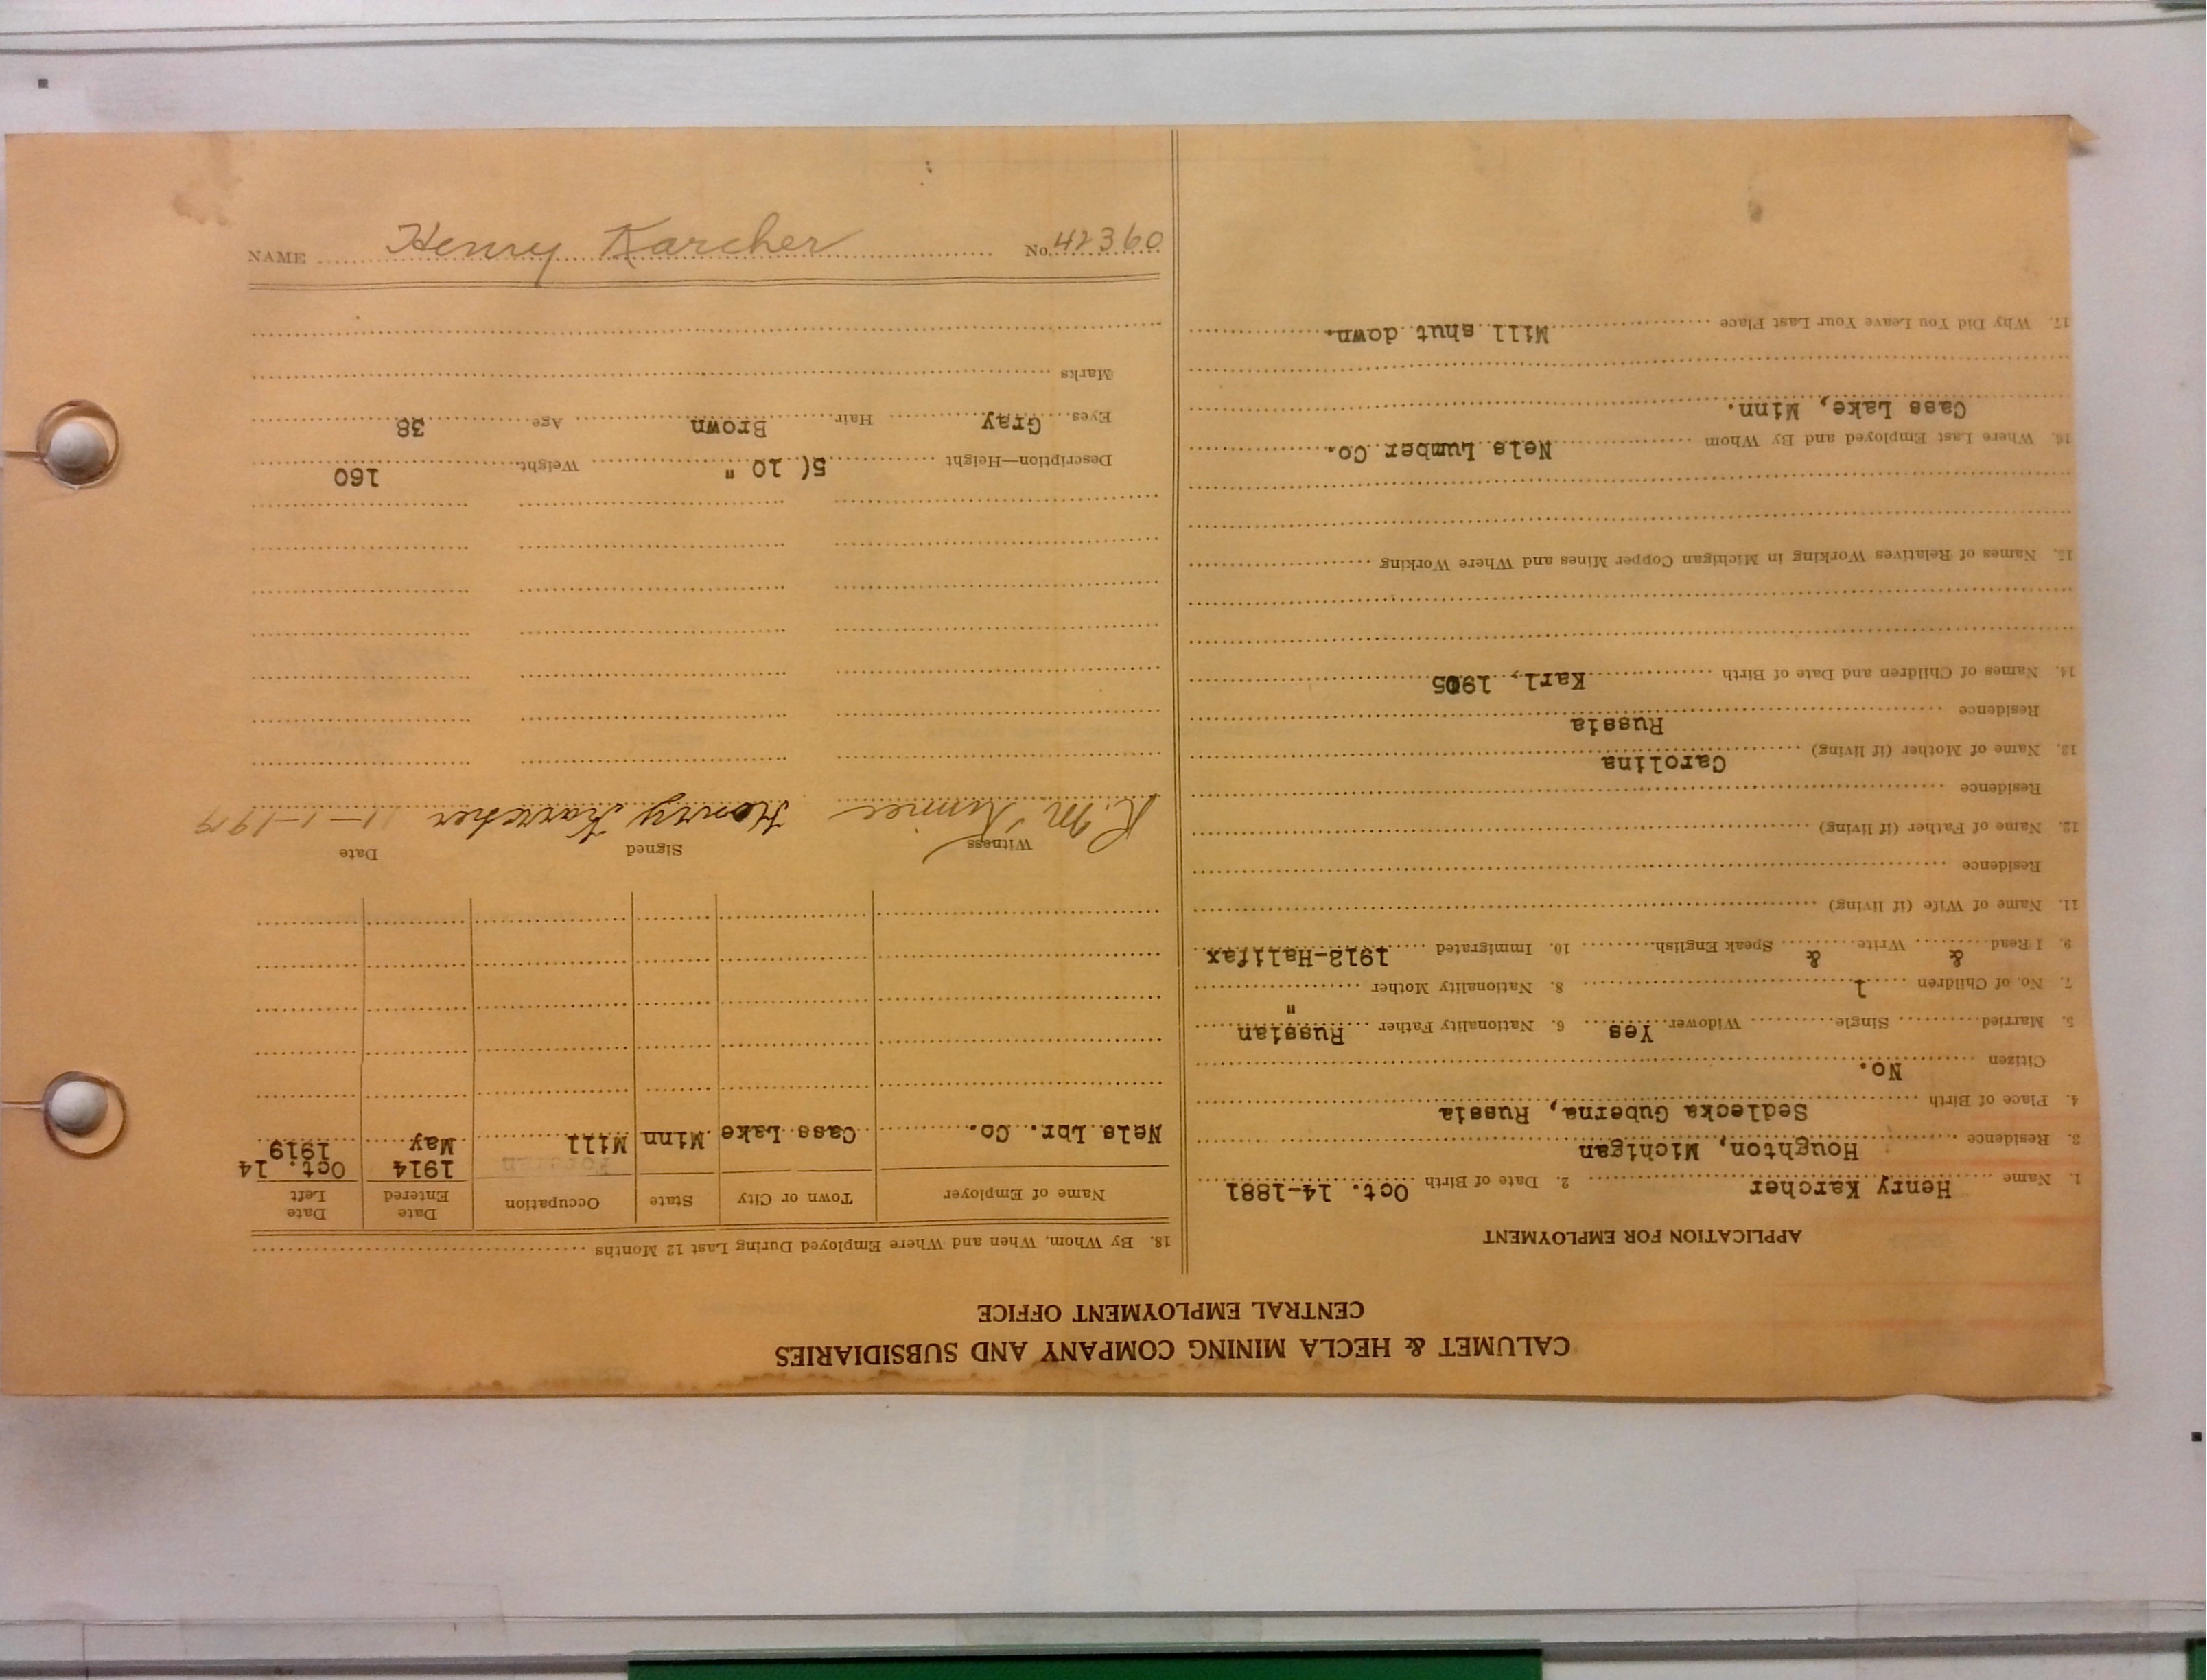 CALUMET & HECLA MINING COMPANY AND SUBSIDIARIES
CENTRAL EMPLOYMENT OFFICE
APPLICATION FOR EMPLOYMENT
1. Name Henry Karcher 2. Date of Birth Oct. 14-1881
3. Residence Houghton, Michigan
4. Place of Birth Sedlecka Guberna, Russia
Citizen No.
5. Married Single Widower Yes 6. Nationality Father Russian
7. No. of Children 1 8. Nationality Mother "
9. I Read & Write & Speak English 10. Immigrated 1913-Halifax
11. Name of Wife (if living)
Residence
12. Name of Father (if living)
Residence
13. Name of Mother (if living) Carolina
Residence Russia
14. Names of Children and Date of Birth Karl, 1905
15. Names of Relatives Working in Michigan Copper Mines and Where Working
16. Where Last Employed and By Whom Nels Lumber Co.
Cass Lake, Minn.
17. Why Did You Leave Your Last Place Mill shut down.
18. By Whom, When and Where Employed During Last 12 Months
Name of Employer Town or City State Occupation Date Entered Date Left
Nels Lbr. Co. Cass Lake Minn Mill May 1914 Oct. 14 1919
Witness Signed Date
Henry Karcher 11-1-1919
Description—Height 5( 10 " Weight 160
Eyes Gray Hair Brown Age 38
Marks
NAME Henry Karcher No. 42360